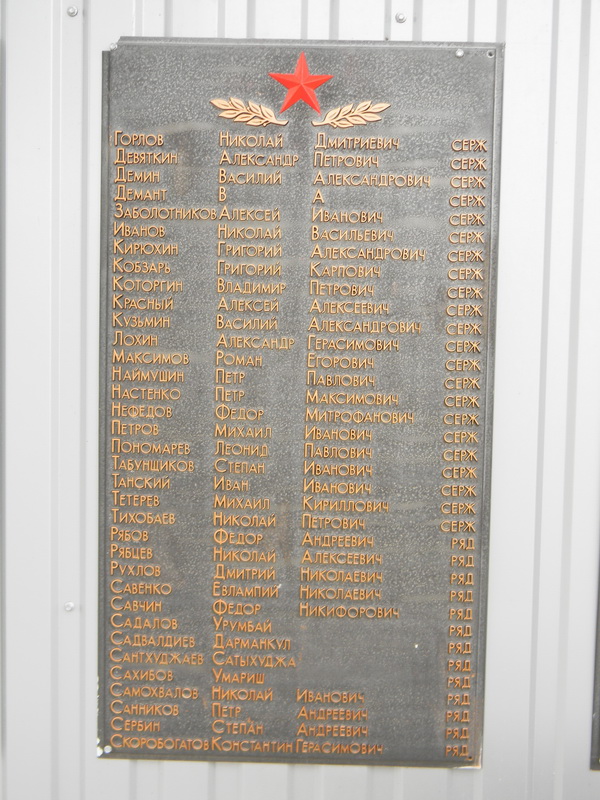 Горлов Николай Дмитриевич серж
Девяткин Александр Петрович серж
Демин Василий Александрович серж
Демант В А серж
Заболотников Алексей Иванович серж
Иванов Николай Васильевич серж
Кирюхин Григорий Александрович серж
Кобзарь Григорий Карпович серж
Которгин Владимир Петрович серж
Красный Алексей Алексеевич серж
Кузьмин Василий Александрович серж
Лохин Александр Герасимович серж
Максимов Роман Егорович серж
Наймушин Петр Павлович серж
Настенко Петр Максимович серж
Нефедов Федор Митрофанович серж
Петров Михаил Иванович серж
Пономарев Леонид Павлович серж
Табунщиков Степан Иванович серж
Танский Иван Иванович серж
Тетерев Михаил Кириллович серж
Тихобаев Николай Петрович серж
Рябов Федор Андреевич ряд
Рябцев Николай Алексеевич ряд
Рухлов Дмитрий Николаевич ряд
Савенко Евлампий Николаевич ряд
Савчин Федор Никифорович ряд
Садалов Урумбай ряд
Садвалдиев Дарманкул ряд
Сантхуджаев Сатыхуджа ряд
Сахибов Умариш ряд
Самохвалов Николай Иванович ряд
Санников Петр Андреевич ряд
Сербин Степан Андреевич ряд
Скоробогатов Константин Герасимович ряд